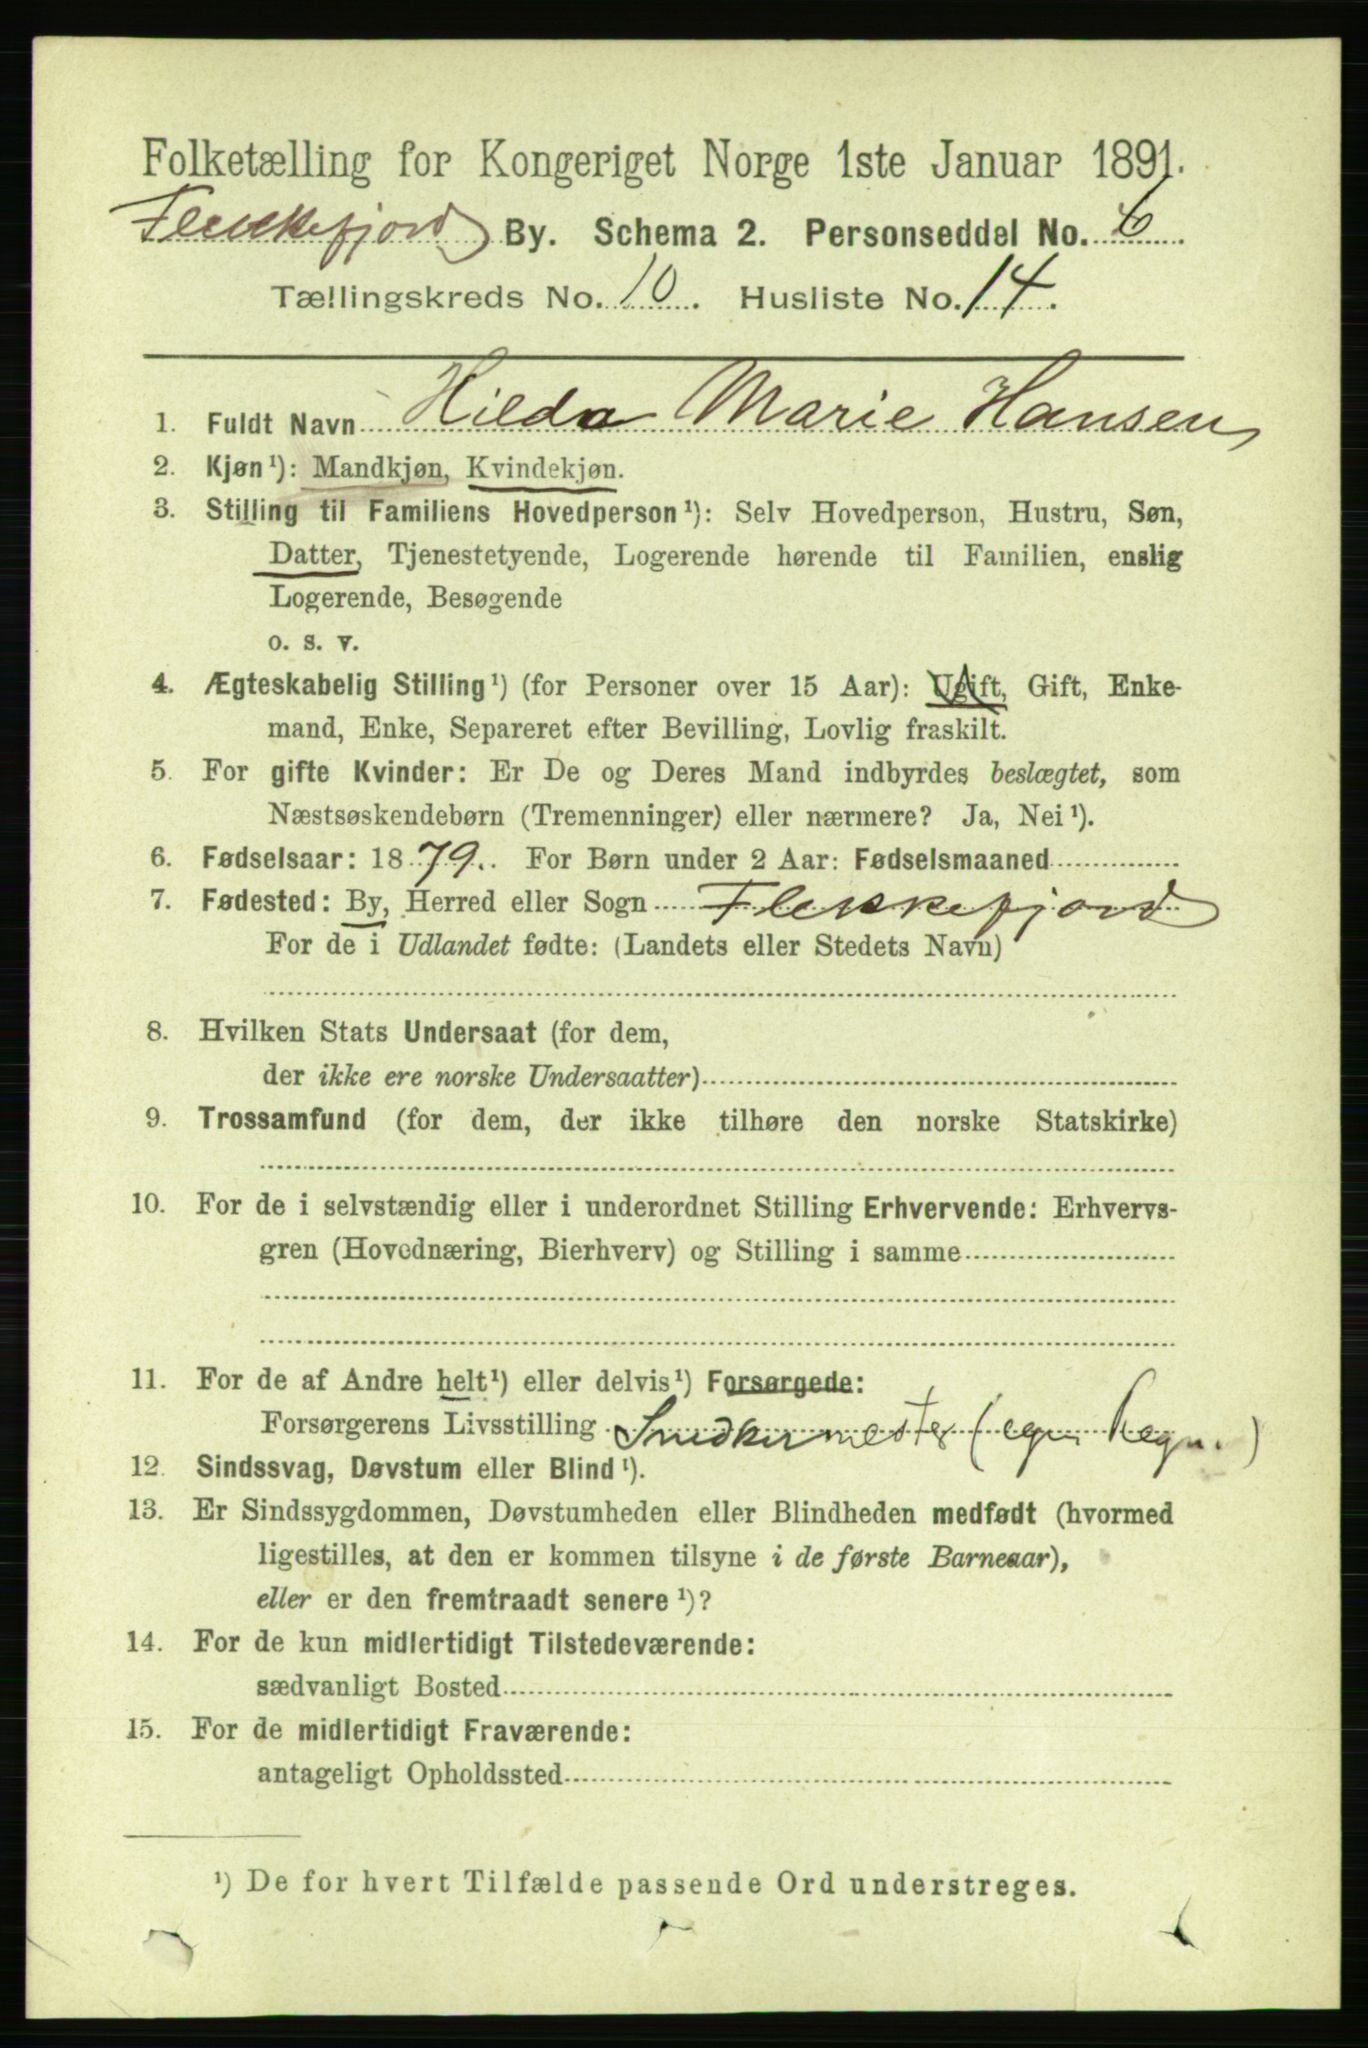 Folketælling for Kongeriget Norge 1ste Januar 1891.
Flekkefjord By. Schema 2. Personseddel No. 6
Tællingskreds No. 10. Husliste No. 14.
1. Fuldt Navn Hilda Marie Hansen
2. Kjøn¹): Mandkjøn, Kvindekjøn.
3. Stilling til Familiens Hovedperson¹): Selv Hovedperson, Hustru, Søn,
Datter, Tjenestetyende, Logerende hørende til Familien, enslig
Logerende, Besøgende
o. s. v.
4. Ægteskabelig Stilling¹) (for Personer over 15 Aar): Ugift, Gift, Enke-
mand, Enke, Separeret efter Bevilling, Lovlig fraskilt.
5. For gifte Kvinder: Er De og Deres Mand indbyrdes beslægtet, som
Næstsøskendebørn (Tremenninger) eller nærmere? Ja, Nei¹).
6. Fødselsaar: 1879. For Børn under 2 Aar: Fødselsmaaned
7. Fødested: By, Herred eller Sogn Flekkefjord
For de i Udlandet fødte: (Landets eller Stedets Navn)
8. Hvilken Stats Undersaat (for dem,
der ikke ere norske Undersaatter)
9. Trossamfund (for dem, der ikke tilhøre den norske Statskirke)
10. For de i selvstændig eller i underordnet Stilling Erhvervende: Erhvervs-
gren (Hovednæring, Bierhverv) og Stilling i samme
11. For de af Andre helt¹) eller delvis¹) Forsørgede:
Forsørgerens Livsstilling Snedkermester (egen Regn.)
12. Sindssvag, Døvstum eller Blind¹).
13. Er Sindssygdommen, Døvstumheden eller Blindheden medfødt (hvormed
ligestilles, at den er kommen tilsyne i de første Barneaar),
eller er den fremtraadt senere¹)?
14. For de kun midlertidigt Tilstedeværende:
sædvanligt Bosted
15. For de midlertidigt Fraværende:
antageligt Opholdssted
¹) De for hvert Tilfælde passende Ord understreges.